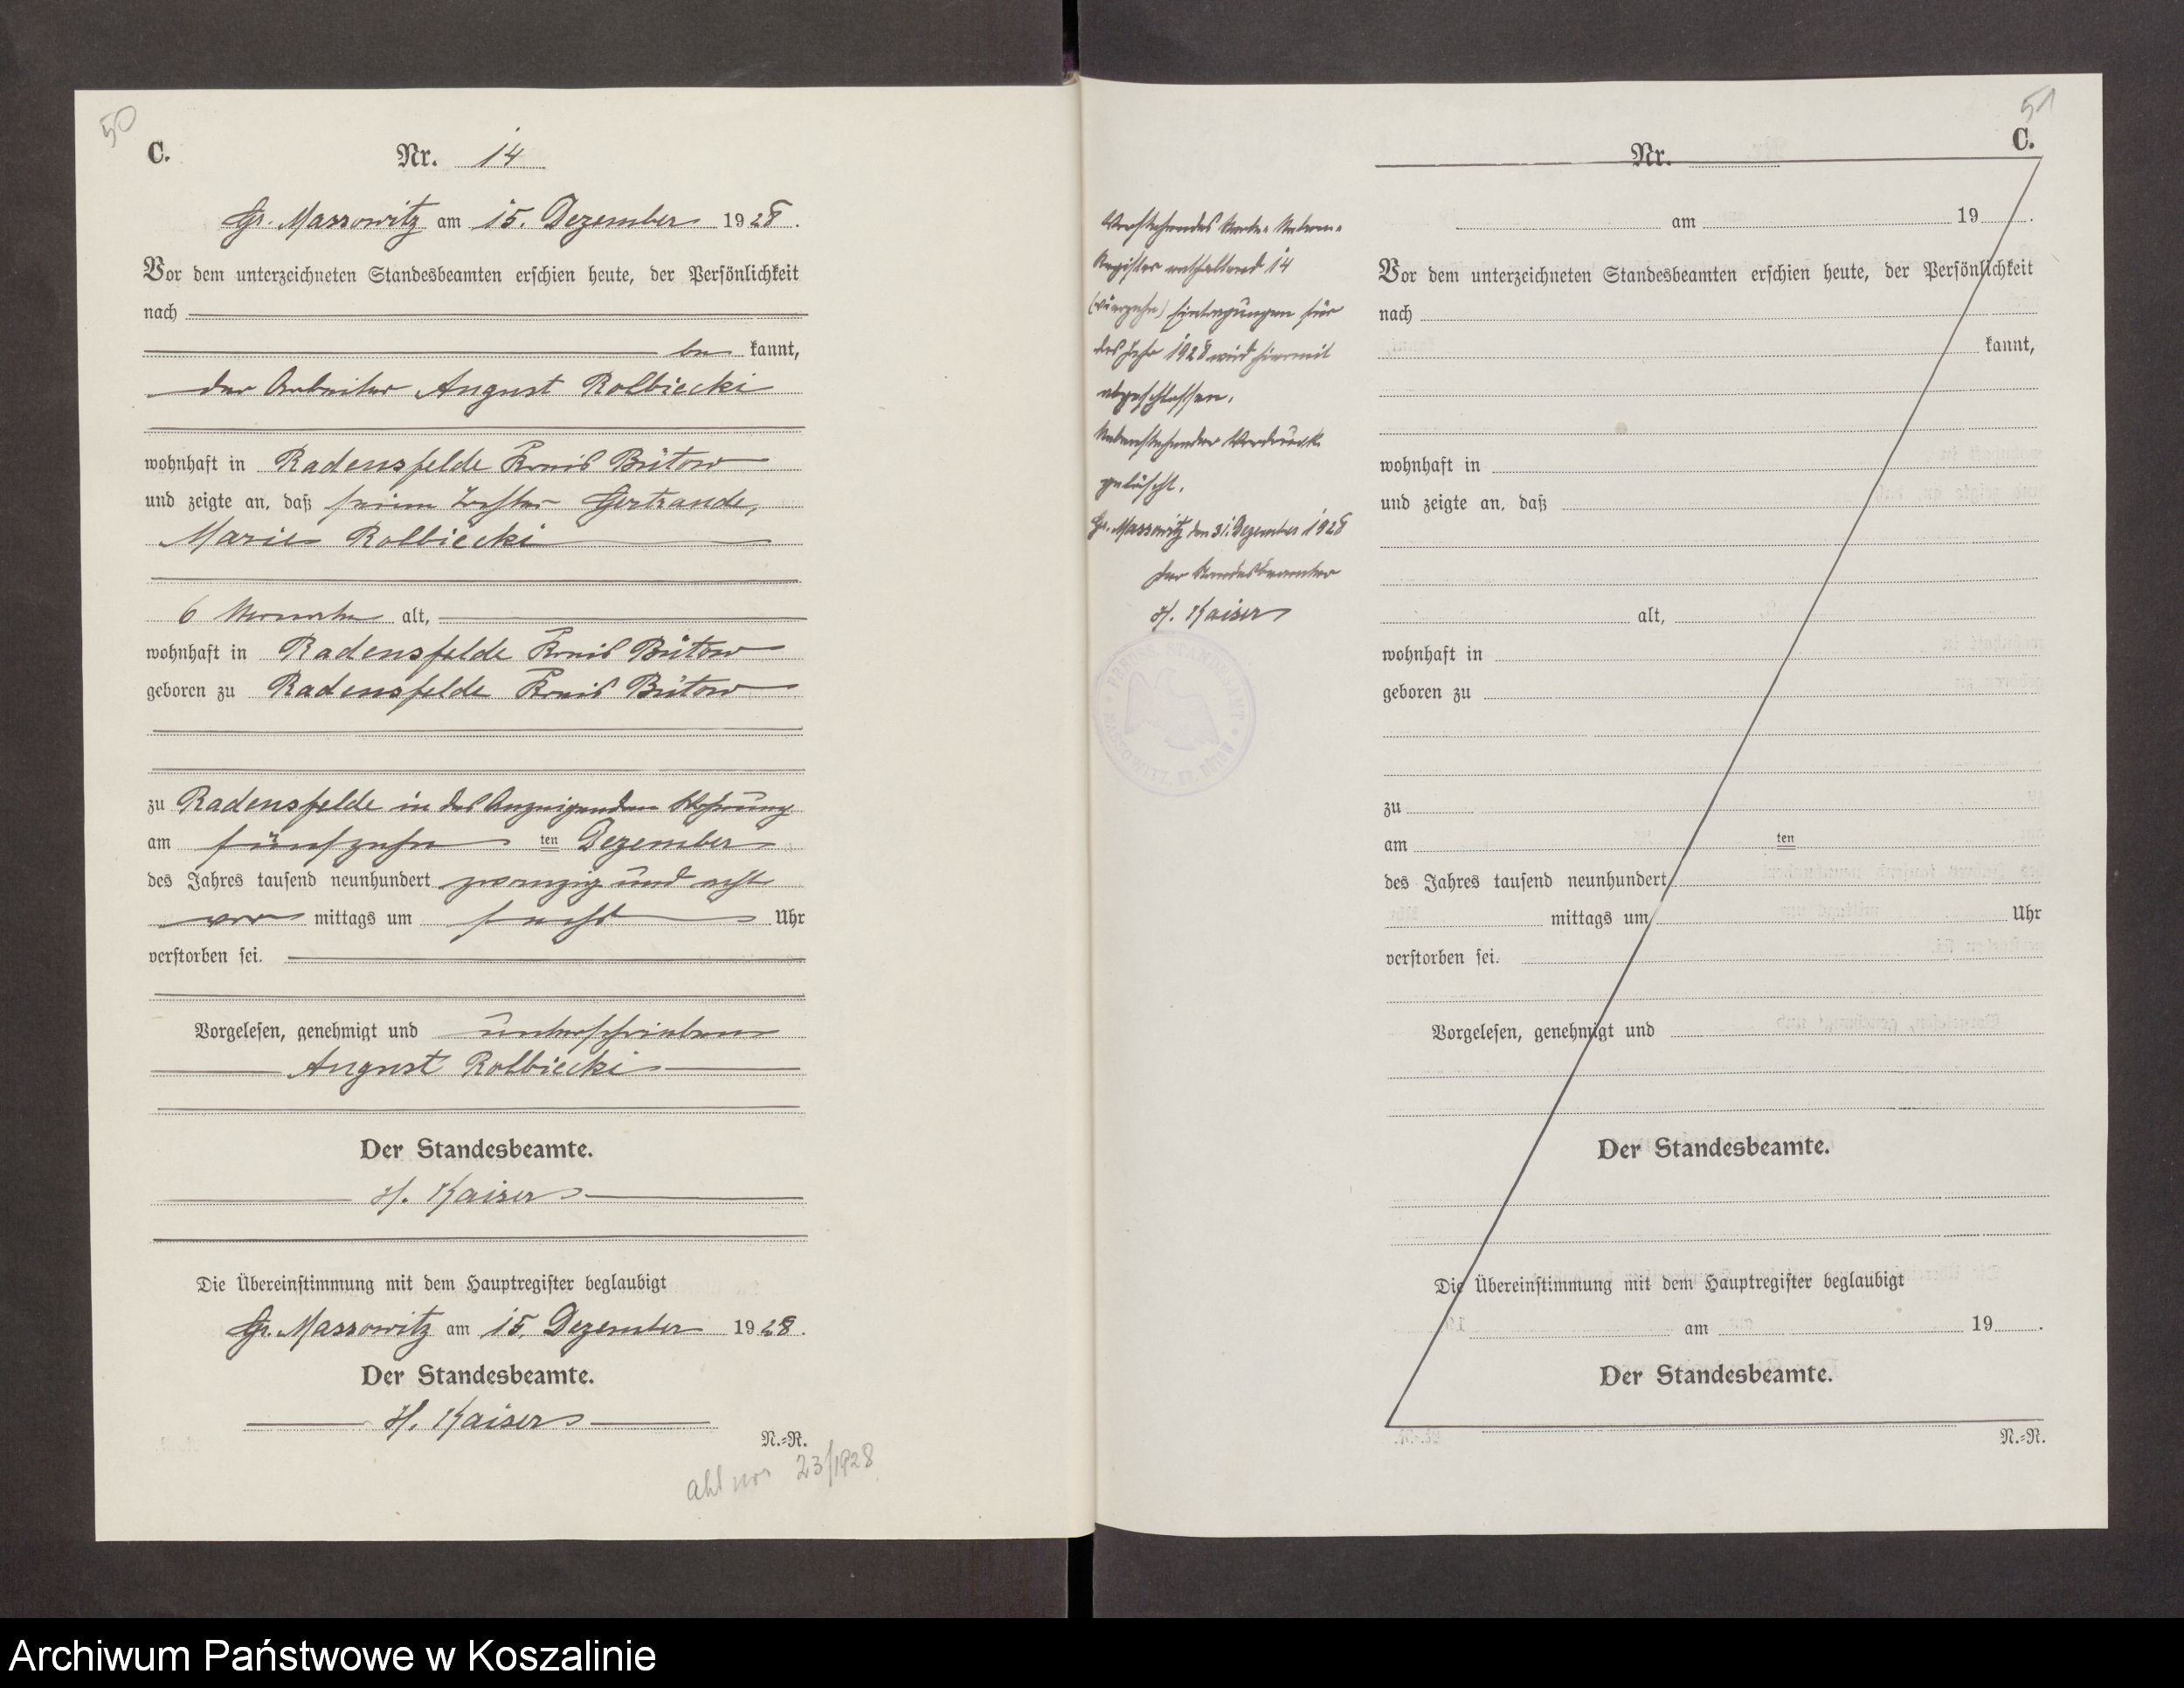 50
C.
Nr. 14
Gr. Massowitz am 15. Dezember 1928.
Vor dem unterzeichneten Standesbeamten erschien heute, der Persönlichkeit
nach
be kannt,
der Arbeiter August Rolbiecki
wohnhaft in Radensfelde Kreis Bütow
und zeigte an, daß seine Tochter Gertraude,
Marie Rolbiecki
6 Monate alt,
wohnhaft in Radensfelde Kreis Bütow
geboren zu Radensfelde Kreis Bütow
zu Radensfelde in des Anzeigenden Wohnung
am fünfzehn ten Dezember
des Jahres tausend neunhundert zwanzig und acht
vor mittags um sechs Uhr
verstorben sei.
Vorgelesen, genehmigt und unterschrieben
August Rolbiecki
Der Standesbeamte.
H. Kaiser
Die Übereinstimmung mit dem Hauptregister beglaubigt
Gr. Massowitz am 15. Dezember 1928.
Der Standesbeamte.
H. Kaiser
N.=R.
akt nr 23/1928
51
C.
Vorstehendes Sterbe-Neben-
Register enthaltend 14
(vierzehn) Eintragungen für
das Jahr 1928 wird hiermit
abgeschlossen.
Nebenstehender Vordruck
gelöscht.
Gr. Massowitz den 31. Dezember 1928
Der Standesbeamte
H. Kaiser
PREUSS. STANDESAMT
MASSOWITZ, KR. BÜTOW
Nr.
am 19 .
Vor dem unterzeichneten Standesbeamten erschien heute, der Persönlichkeit
nach
kannt,
wohnhaft in
und zeigte an, daß
alt,
wohnhaft in
geboren zu
zu
am ten
des Jahres tausend neunhundert
mittags um Uhr
verstorben sei.
Vorgelesen, genehmigt und
Der Standesbeamte.
Die Übereinstimmung mit dem Hauptregister beglaubigt
am 19 .
Der Standesbeamte.
N.=R.
Archiwum Państwowe w Koszalinie